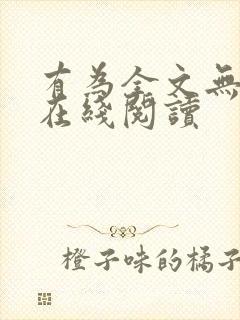 有為全文無
在綫閱讀
橙子味的橘子